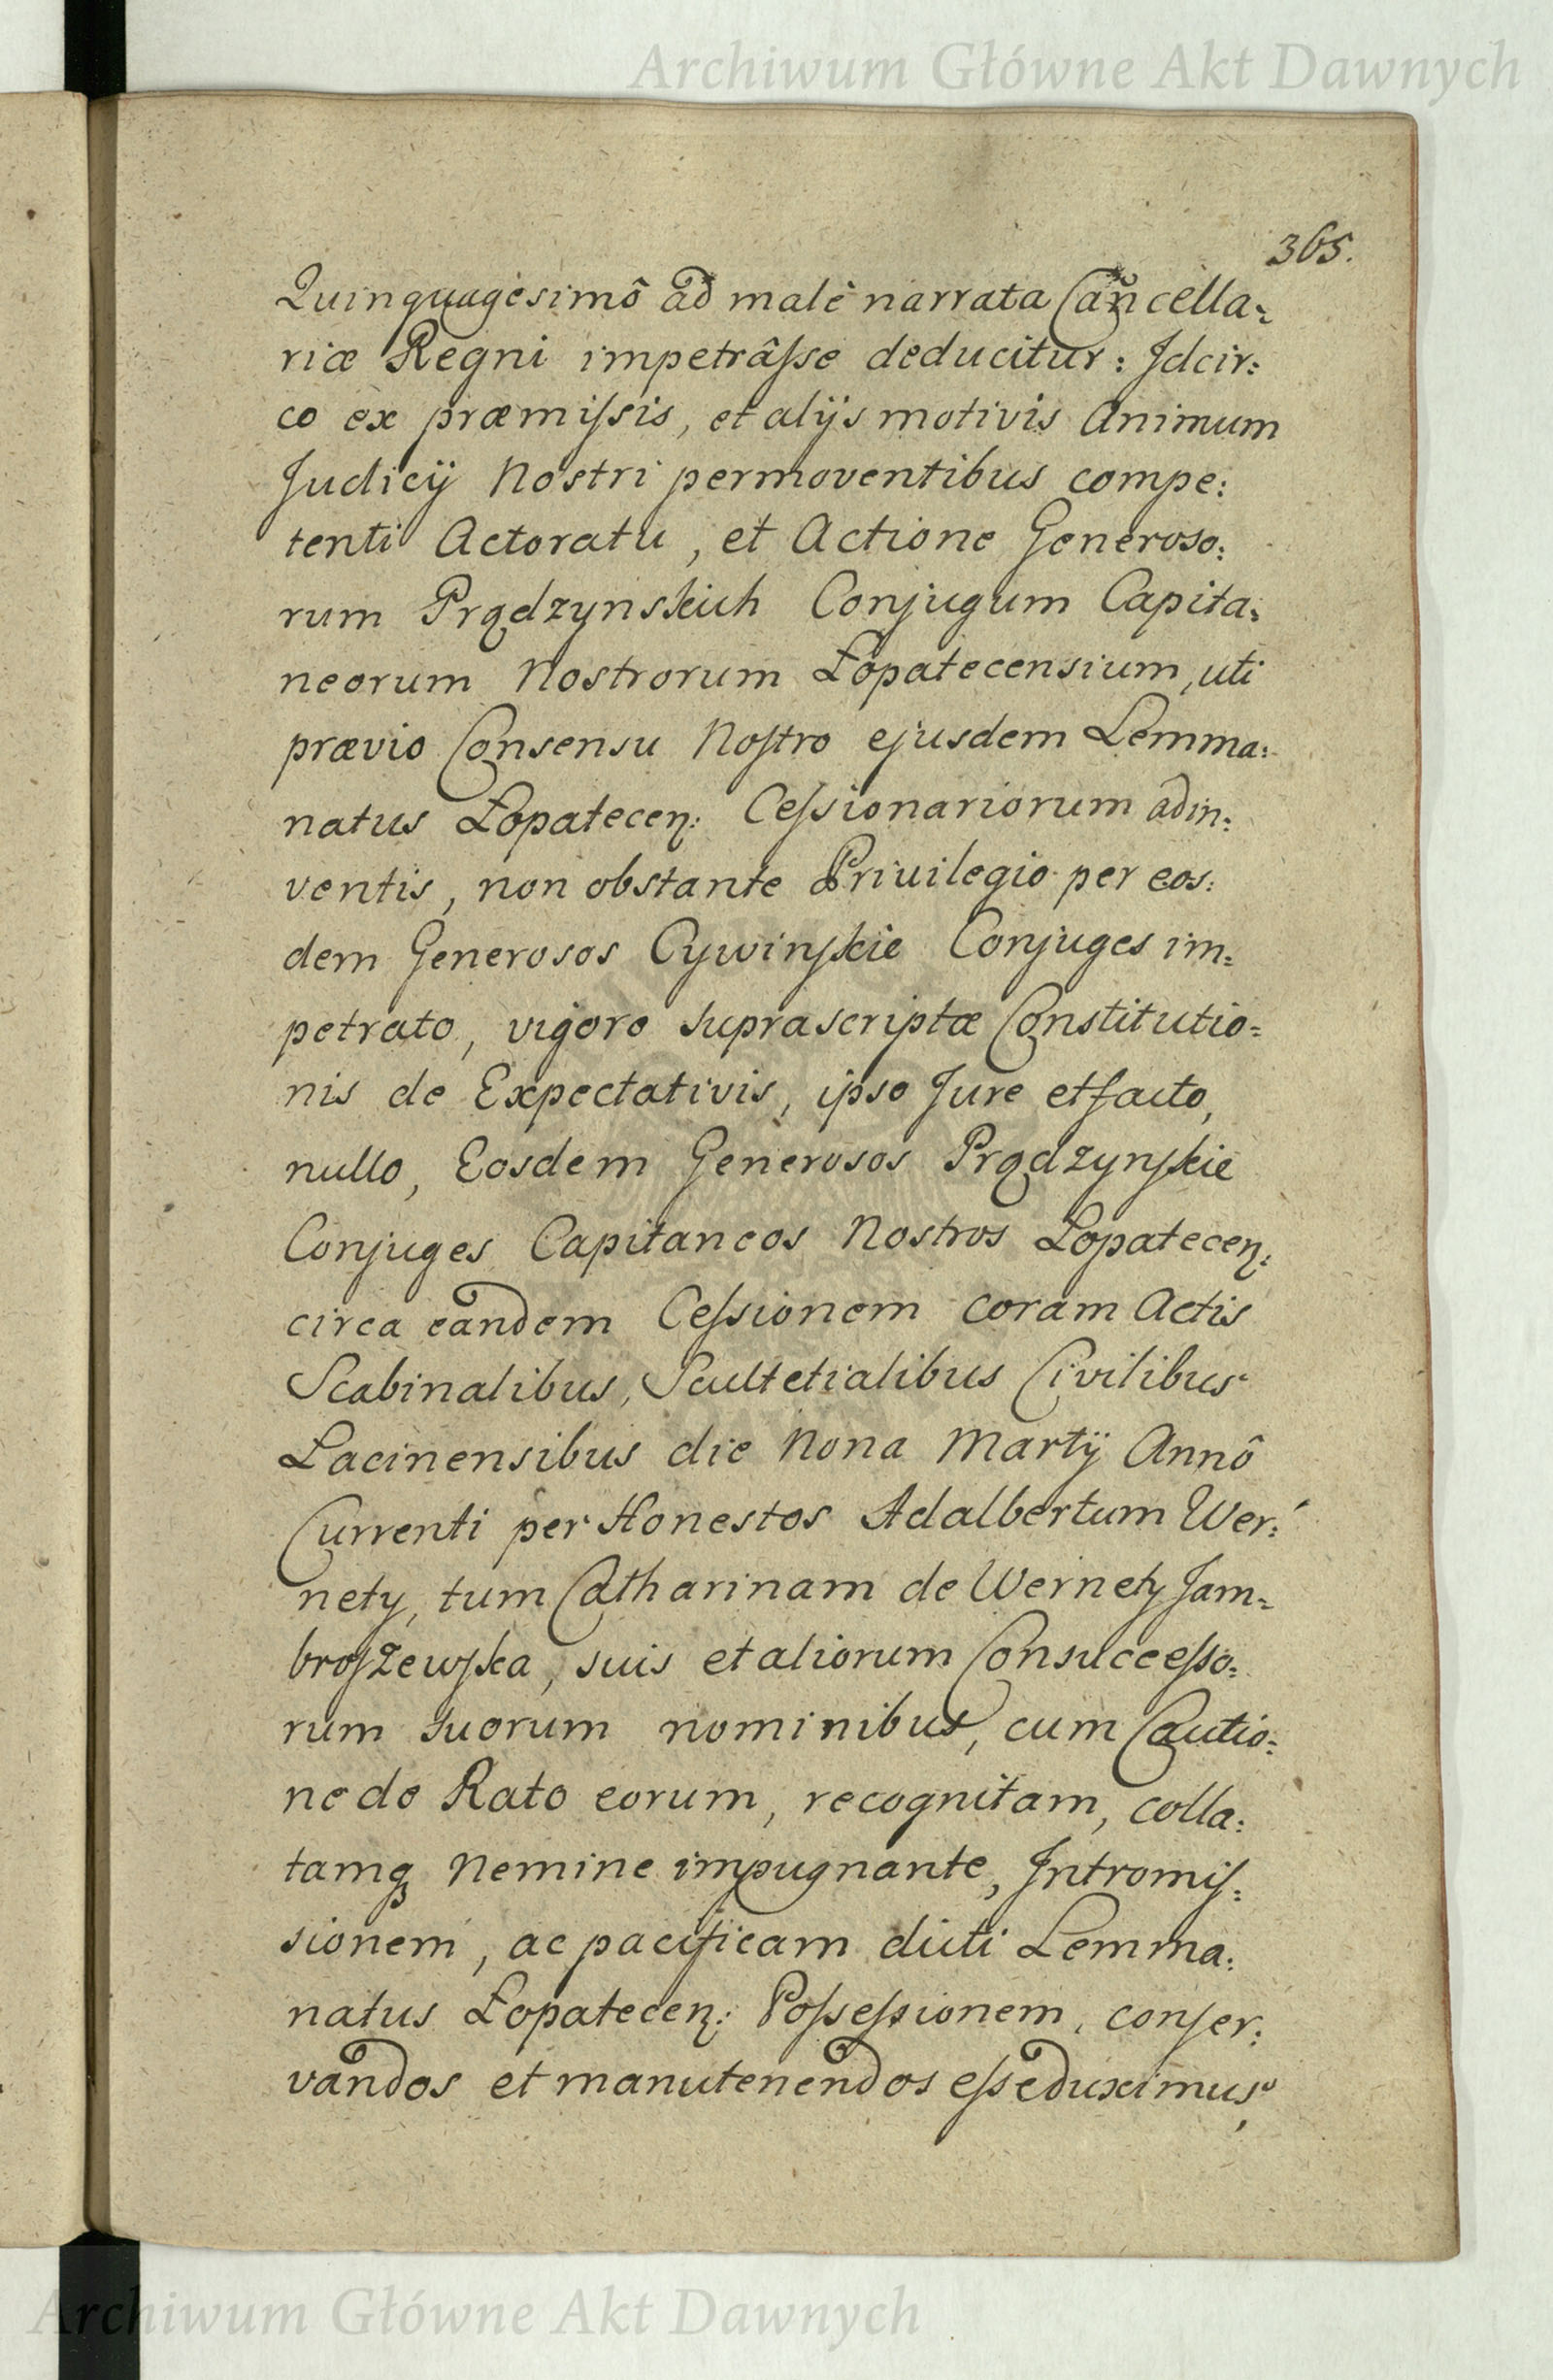 Archiwum Główne Akt Dawnych
365.
Quinquagesimô ad malè narrata Cancella-
riæ Regni impetrâſse deducitur: Idcir:
co ex præmiſsis, et alijs motivis Animum
Judicÿ Nostri permoventibus compe:
tenti Actoratu, et Actione Generoso:
rum Prądzynskich Conjugum Capita:
neorum Nostrorum Łopatecensium, uti
prævio Consensu Noſtro ejusdem Lemma:
natus Łopatecen: Ceſsionariorum adin:
ventis, non obstante Privilegio per eos:
dem Generosos Cywinſkie Conjuges im:
petrato, vigore suprascriptæ Constitutio=
nis de Expectativis, ipso Jure et facto,
nullo, Eosdem Generosos Prądzynſkie
Conjuges Capitaneos Nostros Łopatecen:
circa eandem Ceſsionem coram Actis
Scabinalibus, Scultetialibus Civilibus
Lacinensibus die Nona Martÿ Annô
Currenti per Honestos Adalbertum Wer:
nety, tum Catharinam de Wernety Jam=
broſzewſka, suis et aliorum Consucceſso:
rum suorum nominibus, cum Cautio:
ne de Rato eorum, recognitam, colla:
tamq́ Nemine impugnante, Intromiſ:
sionem, ac pacificam dicti Lemma:
natus Łopatecen: Poſseſsionem, conſer:
vandos et manutenendos eſse duximus,
Archiwum Główne Akt Dawnych